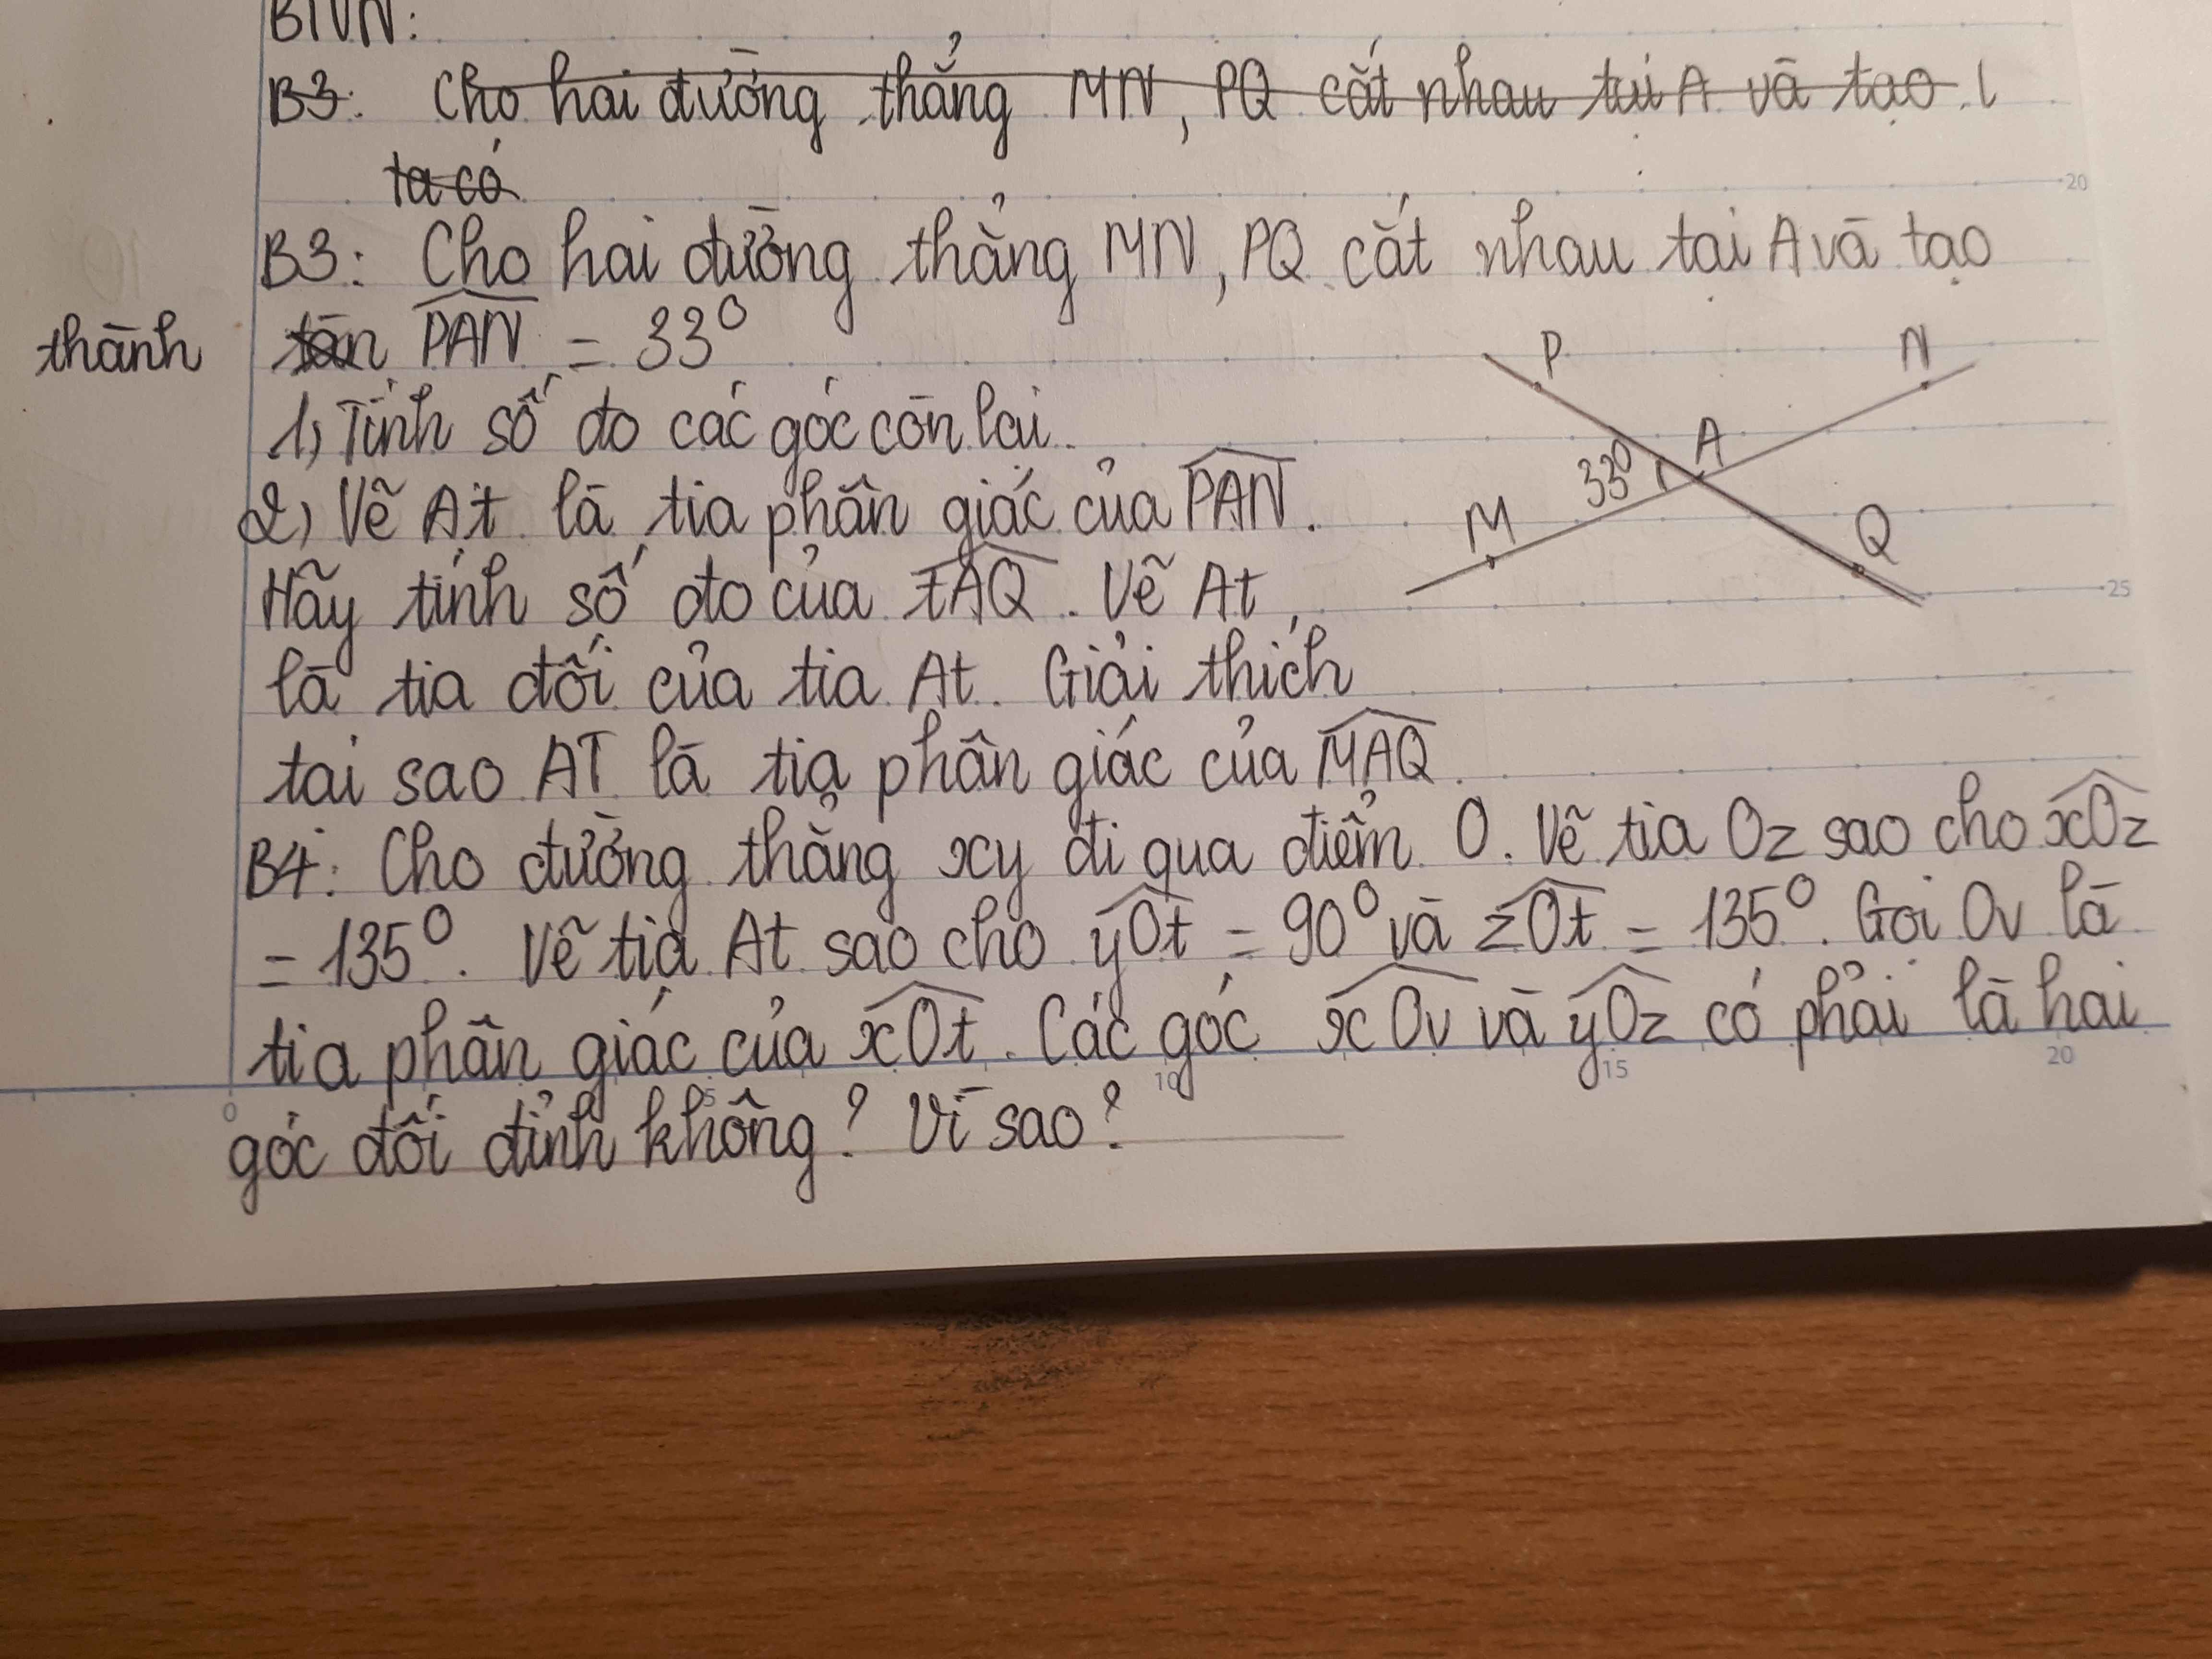 BTVN:
B3: Cho hai đường thẳng MN, PQ cắt nhau tại A và tạo
ta có
B3: Cho hai đường thẳng MN, PQ cắt nhau tại A và tạo
thành PAN = 33°
1, Tính số đo các góc còn lại.
2, Vẽ At là tia phân giác của PAN.
Hãy tính số đo của tAQ. Vẽ At,
là tia đối của tia At. Giải thích
tại sao AT là tia phân giác của MAQ.
P N
A
33°
M
Q
B4: Cho đường thẳng xy đi qua điểm O. Vẽ tia Oz sao cho xOz
= 135°. Vẽ tia At sao cho yOt = 90° và zOt = 135°. Gọi Ov là
tia phân giác của xOt. Các góc xOv và yOz có phải là hai
góc đối đỉnh không? Vì sao?
20
25
0 5 10 15 20